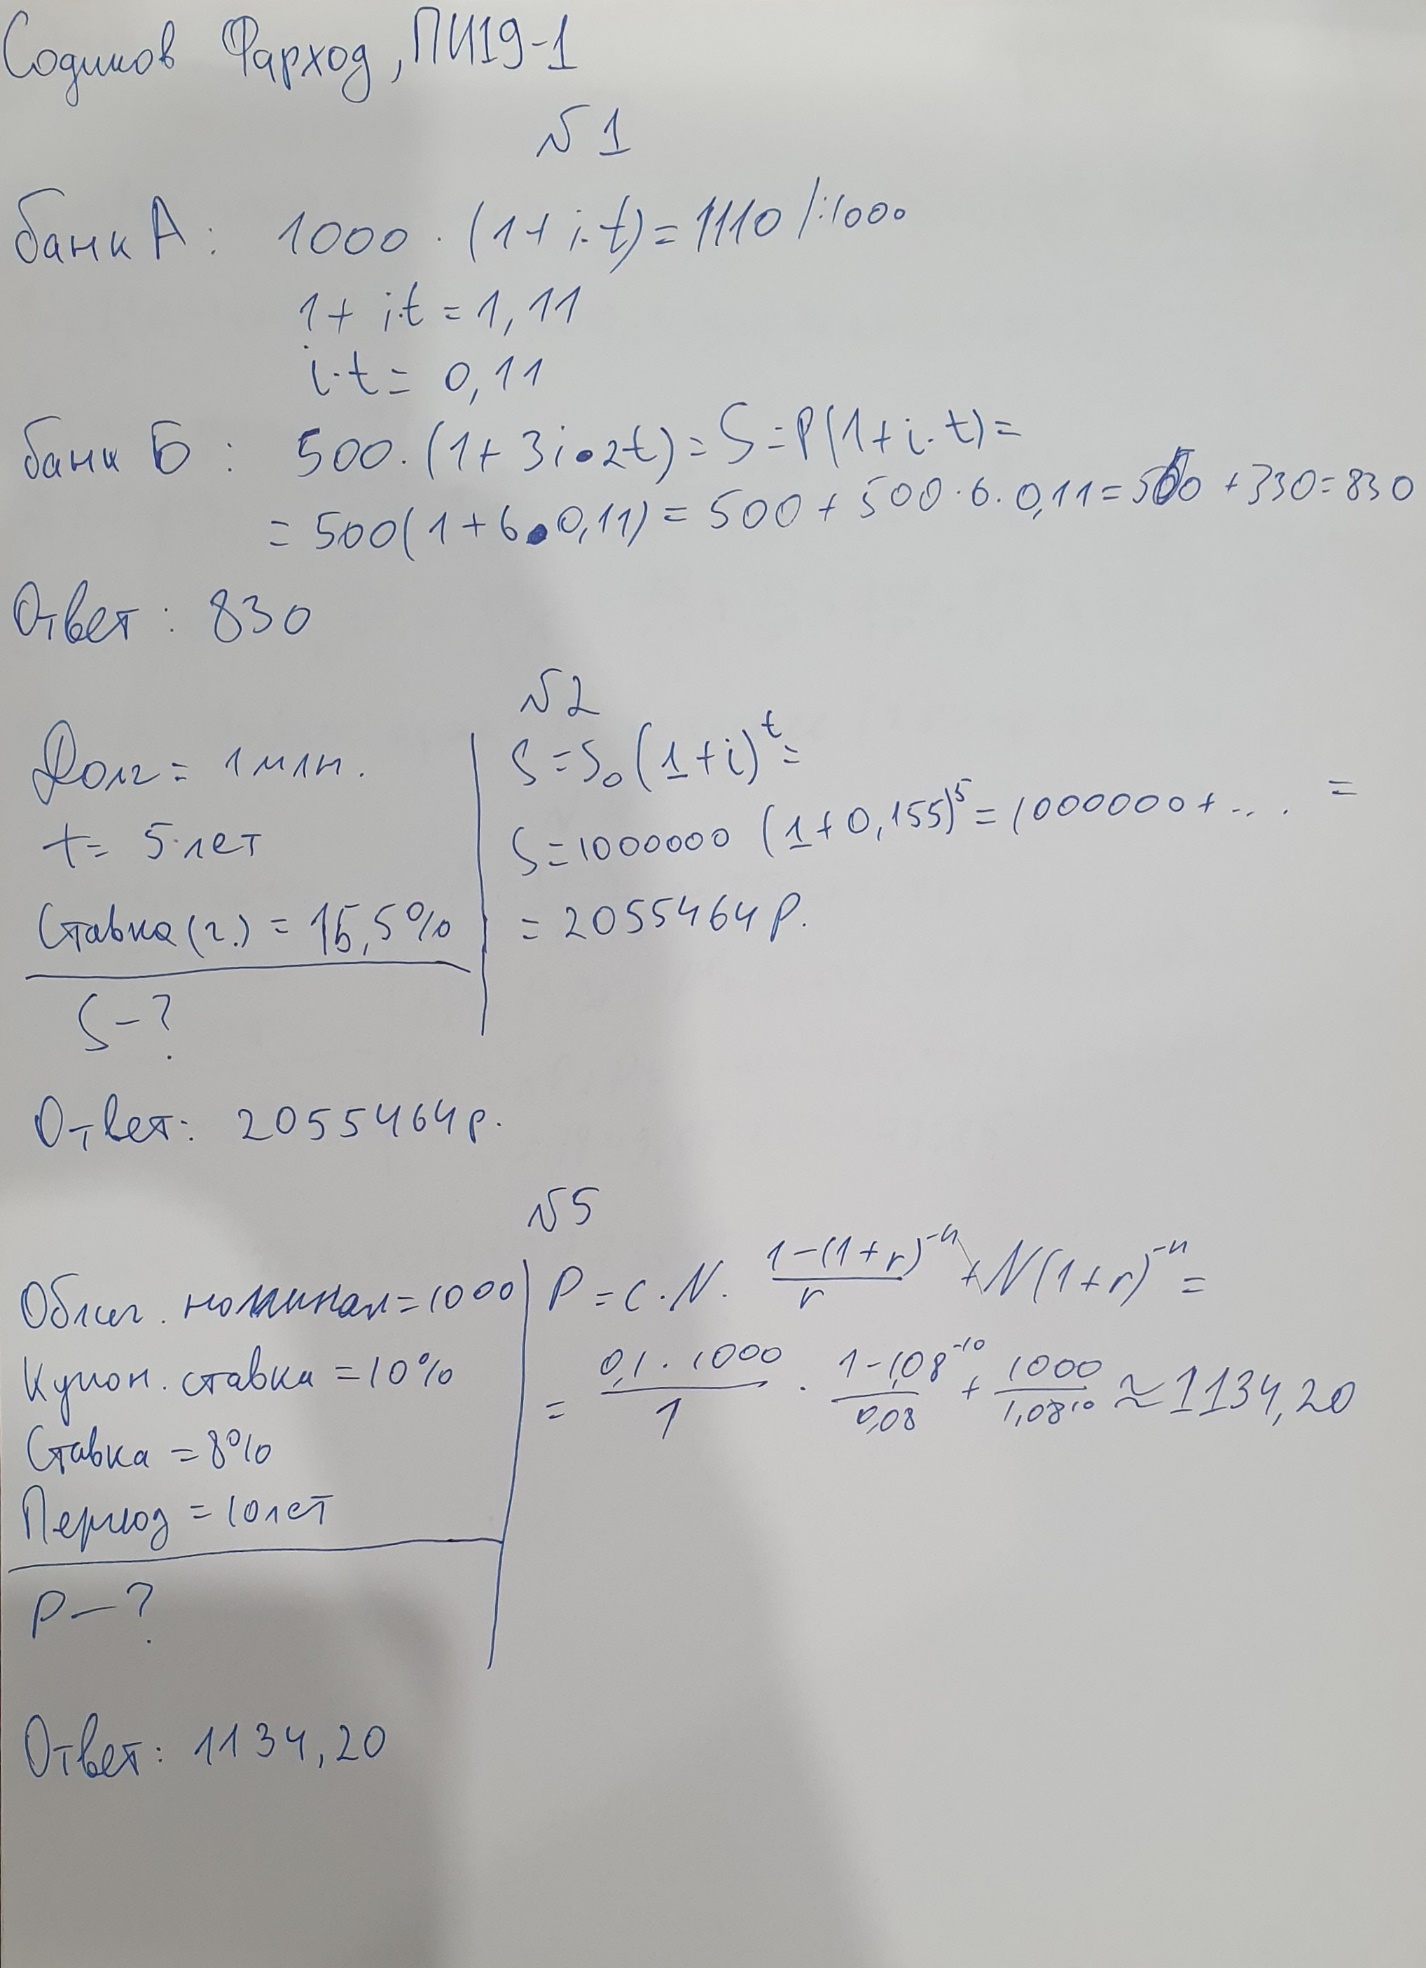 Содиков Фарход, ПИ19-1
№1
банк А: 1000 · (1 + i·t) = 1110 /:1000
1 + i·t = 1,11
i·t = 0,11
банк Б: 500 · (1 + 3i · 2t) = S = P(1 + i·t) =
= 500(1 + 6 · 0,11) = 500 + 500 · 6 · 0,11 = 500 + 330 = 830
Ответ: 830
№2
Долг = 1 млн.
t = 5 лет
Ставка (г.) = 15,5%
S - ?
S = S₀(1 + i)ᵗ =
S = 1000000 (1 + 0,155)⁵ = 1000000 + ... =
= 2055464 р.
Ответ: 2055464 р.
№5
Облиг. номинал = 1000
Купон. ставка = 10%
Ставка = 8%
Период = 10 лет
P - ?
P = c · N · (1 - (1 + r)⁻ⁿ)/r + N(1 + r)⁻ⁿ =
= (0,1 · 1000)/1 · (1 - 1,08⁻¹⁰)/0,08 + 1000/1,08¹⁰ ≈ 1134,20
Ответ: 1134,20